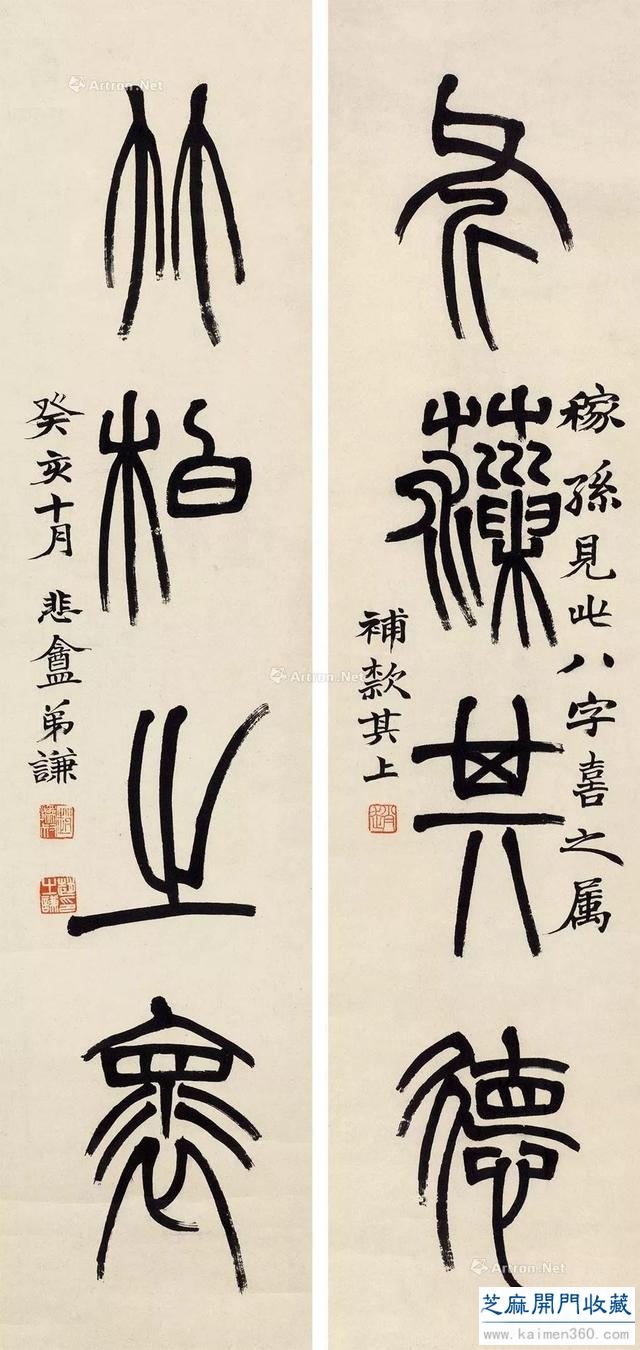 其德
稼孫見此八字喜之属
補款其上
竹柏之褱
癸亥十月 悲盦弟謙
Artron.Net
Artron.Net
Artron.Net
芝麻開門收藏
www.kaimen360.com